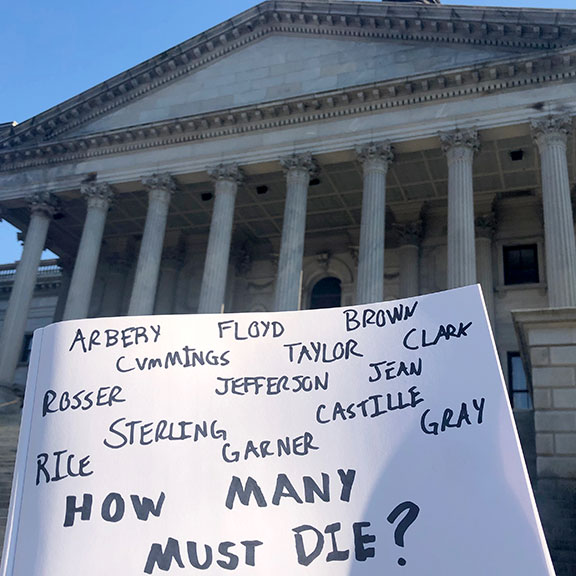 ARBERY FLOYD BROWN
CUMMINGS TAYLOR CLARK
ROSSER JEFFERSON JEAN
STERLING CASTILLE GRAY
RICE GARNER
HOW MANY
MUST DIE?